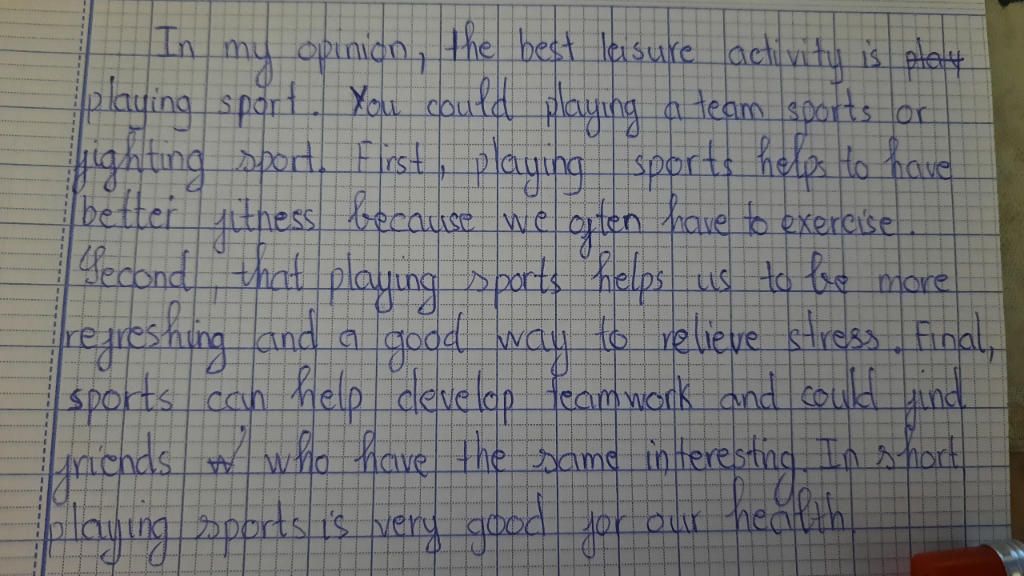 In my opinion, the best leisure activity is play
playing sport. You could playing a team sports or
fighting sport. First, playing sports helps to have
better fitness because we often have to exercise.
Second, that playing sports helps us to be more
refreshing and a good way to relieve stress. Final,
sports can help develop teamwork and could find
friends w who have the same interesting. In short
playing sports is very good for our health.